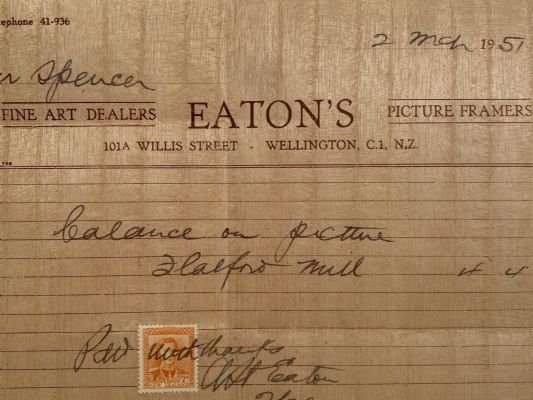 ephone 41-936
2 Mch 1951
r Spencer
FINE ART DEALERS EATON'S PICTURE FRAMERS
101A WILLIS STREET - WELLINGTON, C.1, N.Z.
balance on picture
Flatford Mill 4 4
Paid with thanks
Eaton